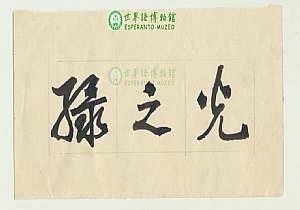 世界語博物館
ESPERANTO-MUZEO
世界語博物館
ESPERANTO-MUZEO
绿之光